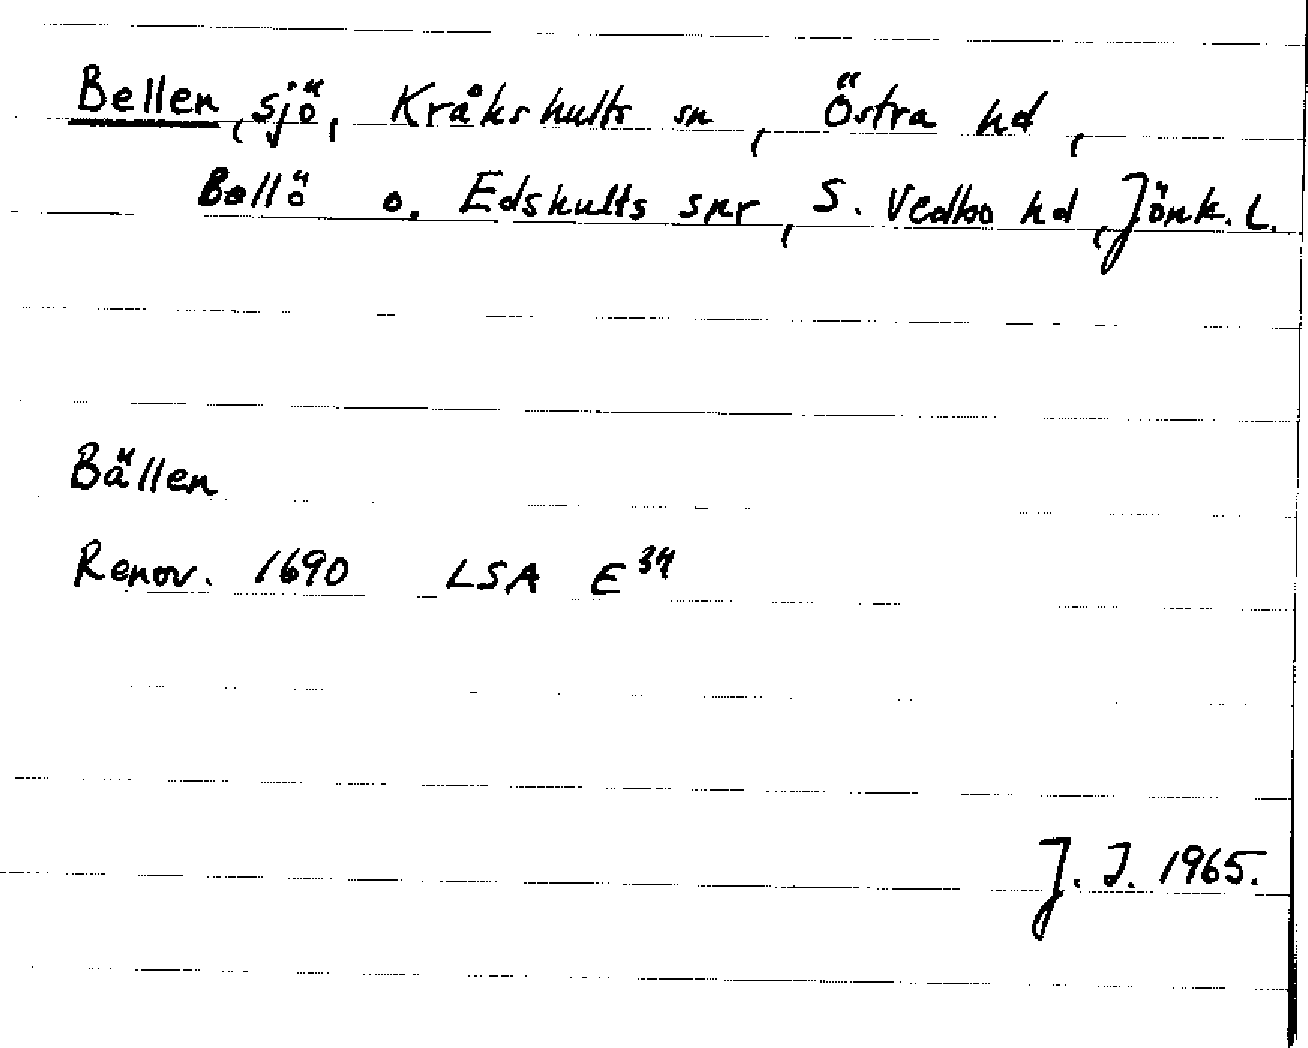 Bellen, sjö, Kråkshults sn, Östra hd,
Bellö o. Edshults snr, S. Vedbo hd, Jönk. L.
Bällen
Renov. 1690 LSA E 34
J. I. 1965.